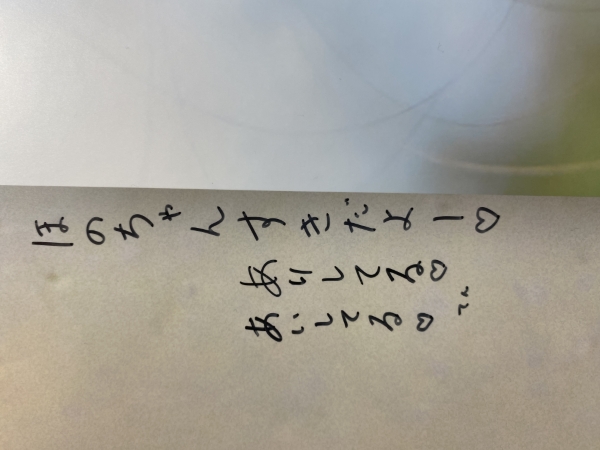 ほのちゃんすきだよー♡
あいしてる♡
あいしてる♡
てん